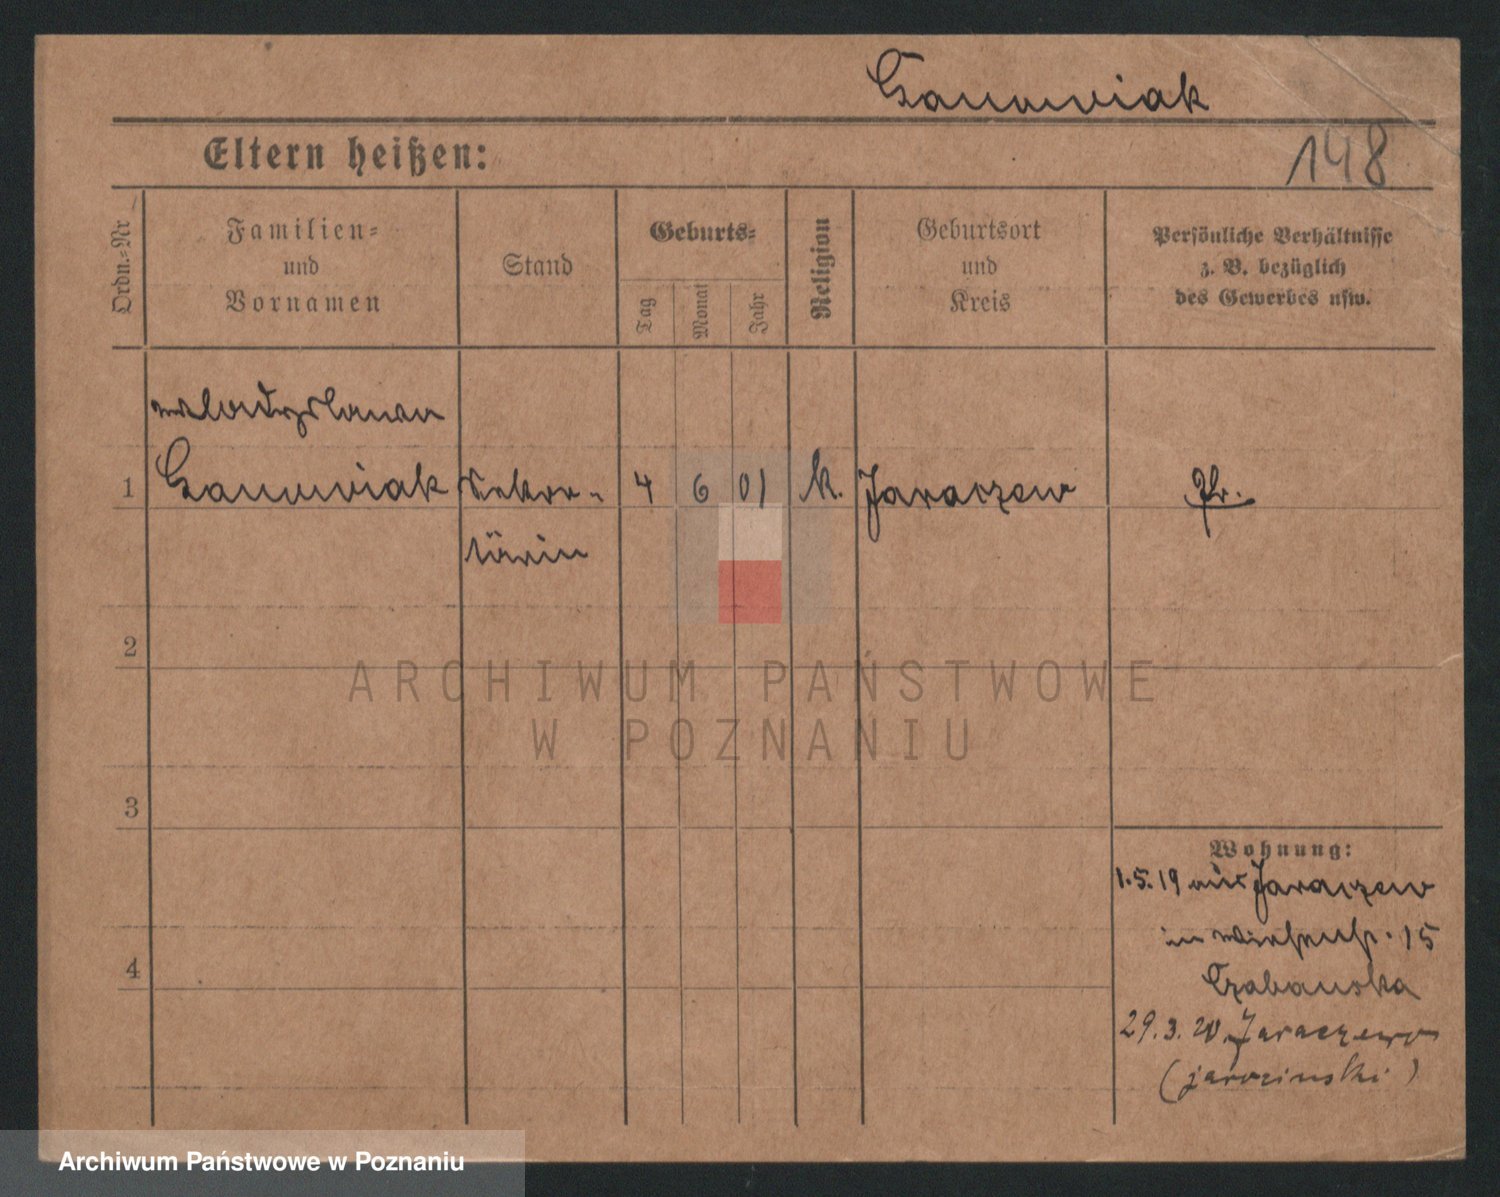 148
Eltern heißen:
Ordn.-Nr
Familien-
und
Vornamen
Stand
Geburts-
Tag
Monat
Jahr
Religion
Geburtsort
und
Kreis
Persönliche Verhältnisse
z. B. bezüglich
des Gewerbes usw.
1
4 6 01 k. Jaraczew Pr.
2
ARCHIWUM PAŃSTWOWE
W POZNANIU
3
4
Wohnung:
1.5.19 aus Jaraczew
in 15
Czabanska
29.3.20 Jaraczewo
(jarocinski)
Archiwum Państwowe w Poznaniu